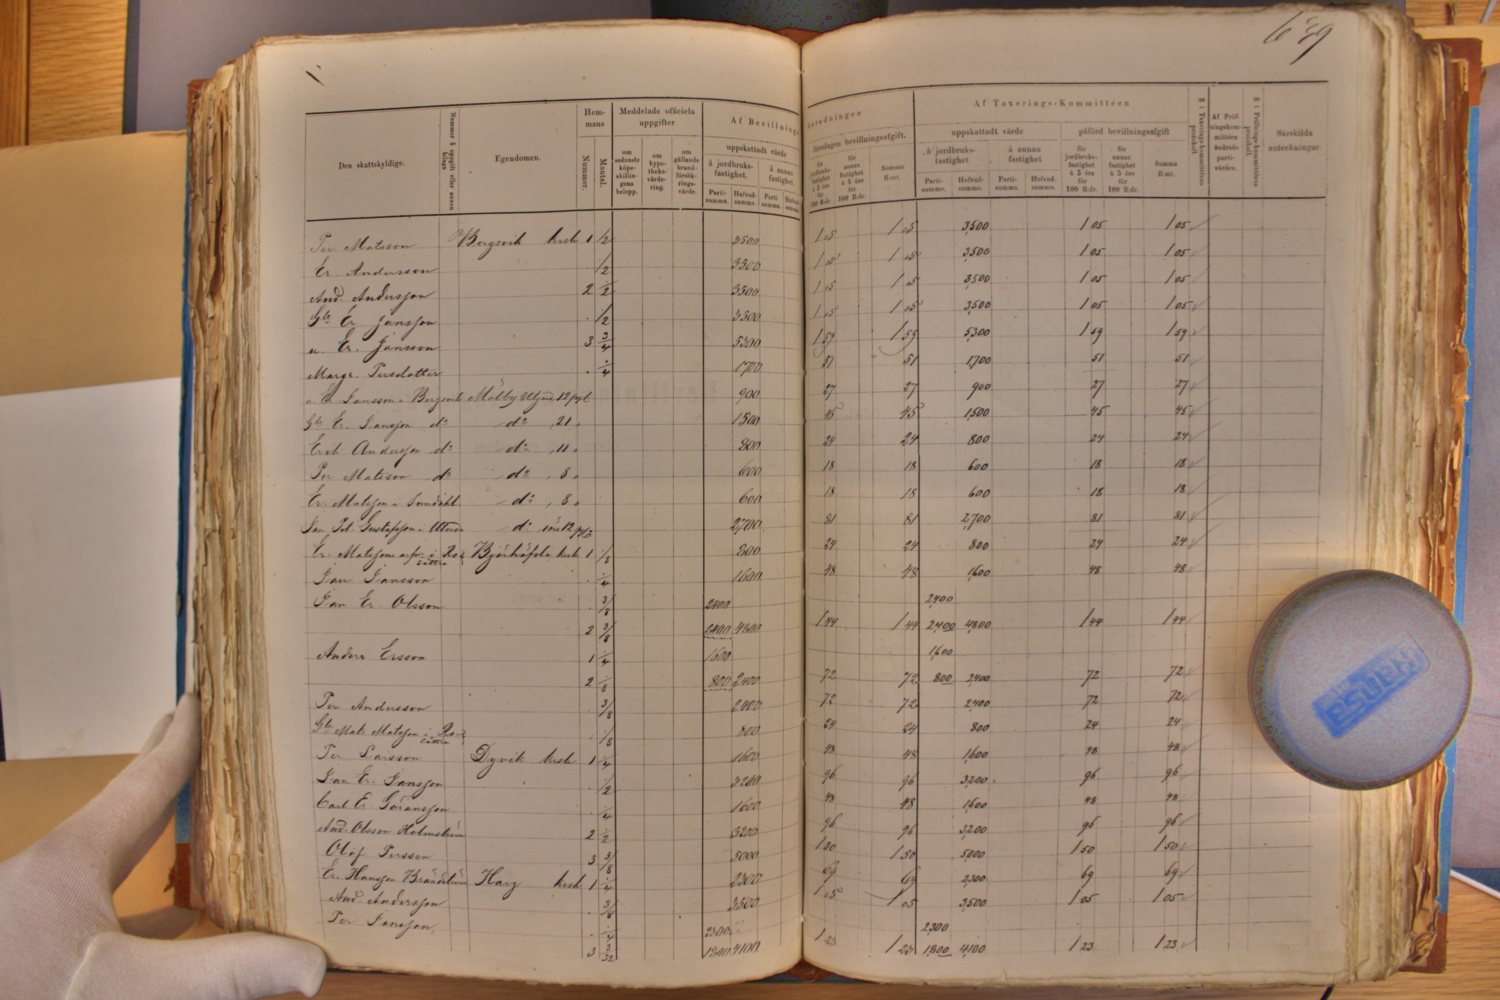 639
Den skattskyldige.
Nummer å uppgift eller annan bilaga
Egendomen.
Hemmans
Nummer.
Mantal.
Meddelade officiela uppgifter
om sednaste köpeskillingens belopp.
om hypoteksvärdering.
om gällande brandförsäkringsvärde.
Af Bevillnings
beredningen
uppskattadt värde
å jordbruksfastighet.
å annan fastighet.
Partisumma.
Hufvudsumma.
föreslagen bevillningsafgift.
för annan fastighet à 5 öre för 100 R:dr.
Summa R:mt.
Af Taxerings-Kommittéen
uppskattadt värde
å jordbruksfastighet
å annan fastighet
Partisumma.
Hufvudsumma.
Partisumma.
Hufvudsumma.
påförd bevillningsafgift
för jordbruksfastighet à 3 öre för 100 R:dr.
för annan fastighet à 5 öre för 100 R:dr.
Summa R:mt.
§ i Taxerings-Kommitténs protokoll.
Af Pröfningskommittéen ändrade partivärden.
§ i Pröfnings-kommitténs protokoll.
Särskilda anteckningar.
Per Matsson Bergsvik krsk 1 1/2 3500 1 05 1 05 3,500 1 05 1 05
Er Andersson 1/2 3500 1 05 1 05 3,500 1 05 1 05
And. Andersson 2 1/2 3500 1 05 1 05 3,500 1 05 1 05
Er Jansson 1/2 3500 1 05 1 05 3,500 1 05 1 05
Er. Jansson 3 3/4 5300 1 59 1 59 5,300 1 59 1 59
Margr. Persdotter 1/4 1700 51 51 1,700 51 51
Jansson i Bergsvik Mälby 12 900 27 27 900 27 27
Er. Jansson do do 21 1500 45 45 1,500 45 45
Erik Andersson do do 11 800 24 24 800 24 24
Per Matsson do do 8 600 18 18 600 18 18
Er Matsson i Sunndahl do 8 600 18 18 600 18 18
Jan Pet. Gustafsson i do 12 2700 81 81 2,700 81 81
Er Matssons krsk 1 1/8 800 24 24 800 24 24
Jan Jansson 1/4 1600 48 48 1,600 48 48
Jan Er Olsson 3/8 2400 2,400
2 3/8 2400 4800 1 44 1 44 2,400 4,800 1 44 1 44
Anders Ersson 1 1/4 1600 1,600
2 1/8 800 2400 72 72 800 2,400 72 72
Per Andersson 3/8 2400 72 72 2,400 72 72
Mats Matsson 1/8 800 24 24 800 24 24
Per Larsson Dyvik krsk 1 1/4 1600 48 48 1,600 48 48
Jan Er. Jansson 1/2 3200 96 96 3,200 96 96
Carl E Göransson 1/4 1600 48 48 1,600 48 48
And. Olsson Holmström 2 1/2 3200 96 96 3,200 96 96
Olof Persson 3 3/8 5000 1 50 1 50 5,000 1 50 1 50
Er. Hansson Brännström Harg krsk 1 1/4 2300 69 69 2,300 69 69
And. Andersson 3/8 3500 1 05 1 05 3,500 1 05 1 05
Per Jansson 1/4 2300 2,300
3 3/32 1800 4100 1 23 1 23 1,800 4,100 1 23 1 23